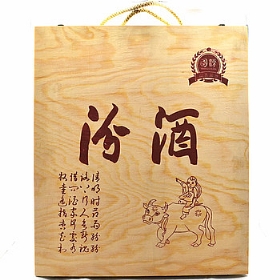 汾酒
清明时节雨纷纷
路上行人欲断魂
借问酒家何处有
牧童遥指杏花村